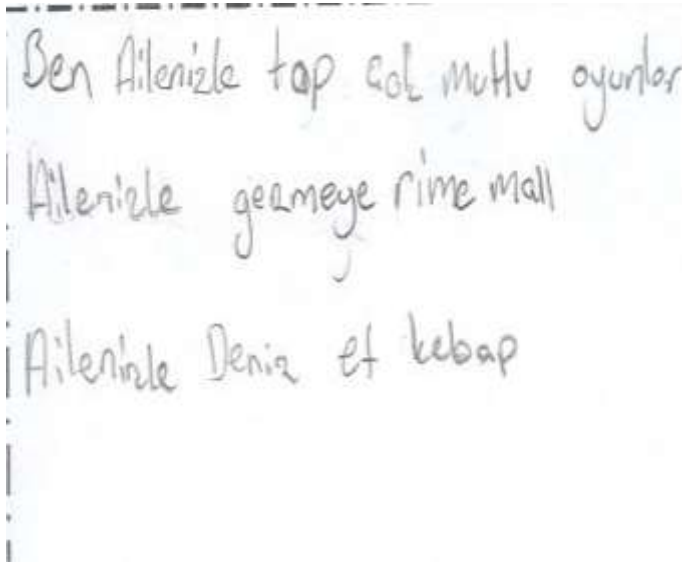 Ben Ailenizle top çok mutlu oyunlar
Ailenizle gezmeye rime mall
Ailenizle Deniz et kebap